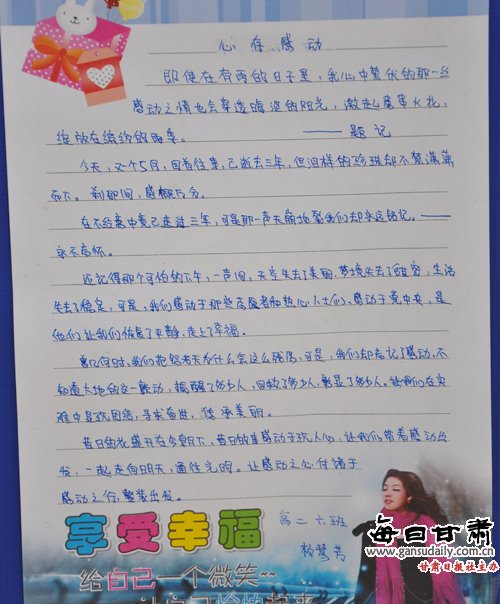 心存感动
即使在有雨的日子里，我心中蛰伏的那一丝
感动之情也会穿透晦涩的阳光，激起星星火花，
绽放在缤纷的雨季。 ——题记
今天，又个5月，回看往事，已逝去三年，但泪样的珍珠却不禁潸潸
而下。刹那间，感慨万分。
在不经意中竟已走过三年，可是那一声天崩地裂我们却永远铭记。——
永不忘怀。
还记得那个可怕的下午，一声闷，天空失去了美丽，梦境失去了甜蜜，生活
失去了稳定，可是，我们感动于那些志愿者和热心人士们，感动于党中央，是
他们让我们恢复了平静，走上了幸福。
曾几何时，我们抱怨老天为什么会这么残忍，可是，我们却忘记了感动，不
知道大地的这一颤动，提醒了多少人，团结了多少人，让我们在灾
难中显现团结，寻求奋进，传承美丽。
昔日的花盛开在今朝下，昔日的事感动于现人心，让我们带着感动出
发，一起走向明天，通往光明，让感动之心付诸于
感动之行，整装出发。
高二六班
杨慧芳
享受幸福
给自己一个微笑~~
让自己愉快起来
每日甘肃
www.gansudaily.com.cn
甘肃日报社主办